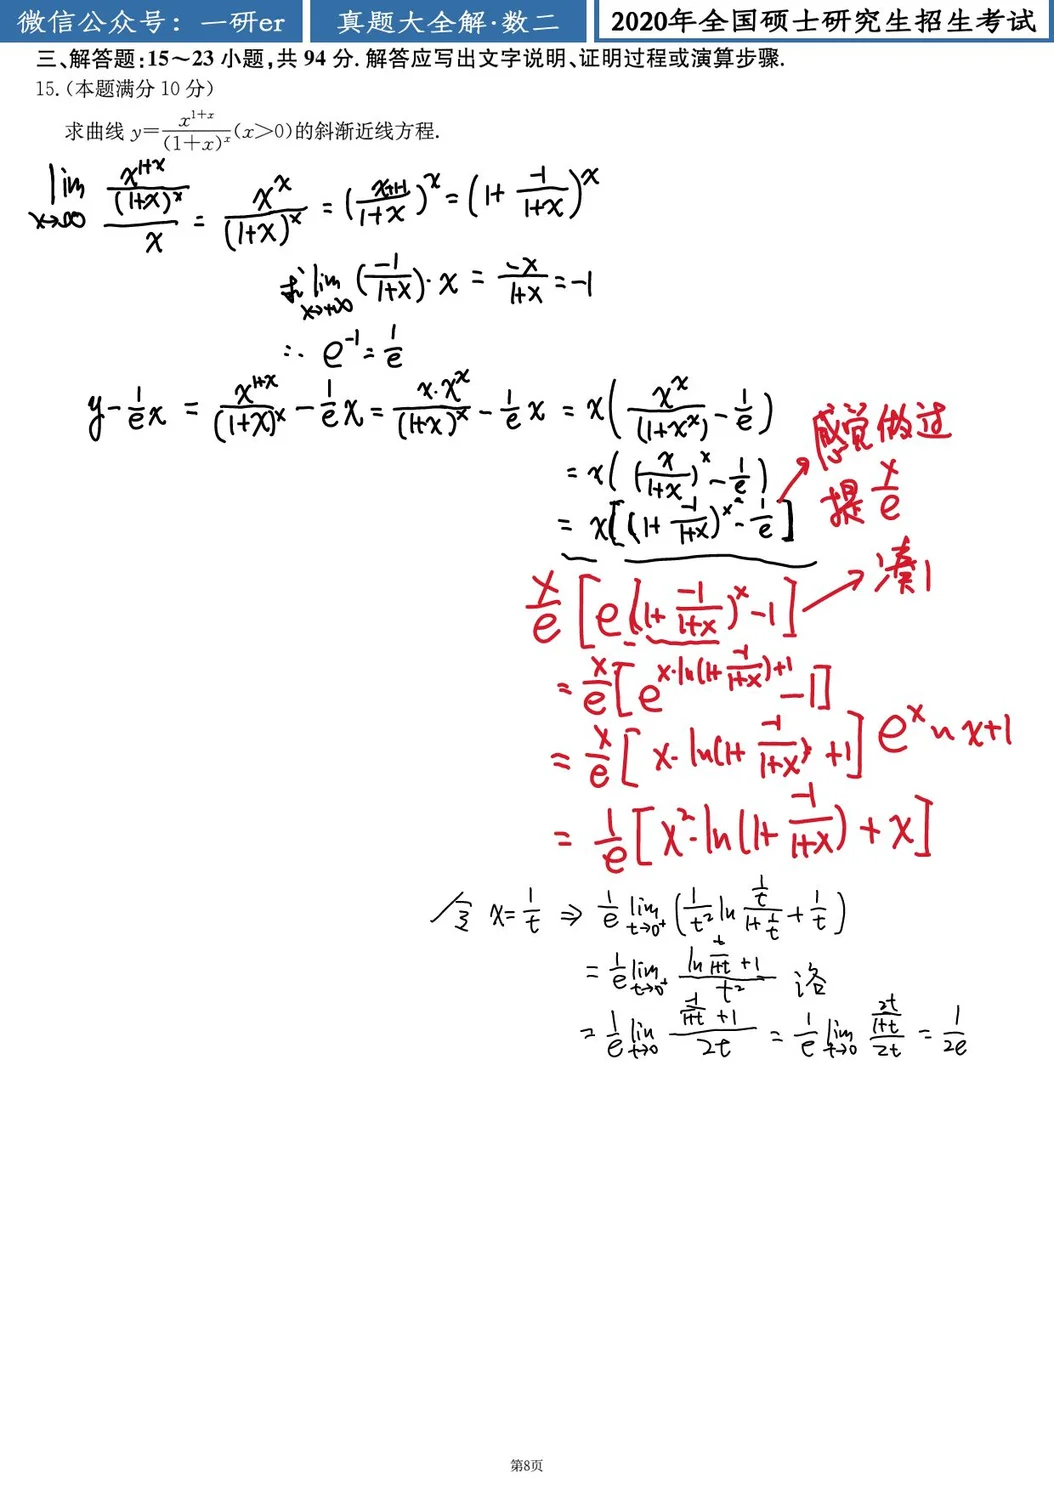 微信公众号：一研er 真题大全解·数二 2020年全国硕士研究生招生考试
三、解答题:15～23 小题,共 94 分. 解答应写出文字说明、证明过程或演算步骤.
15.(本题满分 10 分)
求曲线 y=x^{1+x}/(1+x)^x(x>0)的斜渐近线方程.
lim_{x→∞} (x^{1+x}/(1+x)^x)/x = x^x/(1+x)^x = (x+1-1/1+x)^x = (1+ -1/1+x)^x
求 lim_{x→+∞} (-1/1+x)·x = -x/1+x = -1
∴ e^{-1} = 1/e
y - 1/e x = x^{1+x}/(1+x)^x - 1/e x = x·x^x/(1+x)^x - 1/e x = x(x^x/(1+x^x) - 1/e)
= x((x/1+x)^x - 1/e)
= x[(1+ -1/1+x)^x - 1/e]
感觉做过
提 x/e
x/e [e(1+ -1/1+x)^x - 1]
凑1
= x/e [e^{x·ln(1+ -1/1+x)+1} - 1]
= x/e [x·ln(1+ -1/1+x) +1] e^x ~ x+1
= 1/e [x²·ln(1+ -1/1+x) + x]
令 x=1/t ⇒ 1/e lim_{t→0⁺} (1/t² ln (1/t)/(1+1/t) + 1/t)
= 1/e lim_{t→0⁺} (ln 1/1+t +1)/t² 洛
= 1/e lim_{t→0} (-1/1+t +1)/2t = 1/e lim_{t→0} (2t/1+t)/2t = 1/2e
第8页